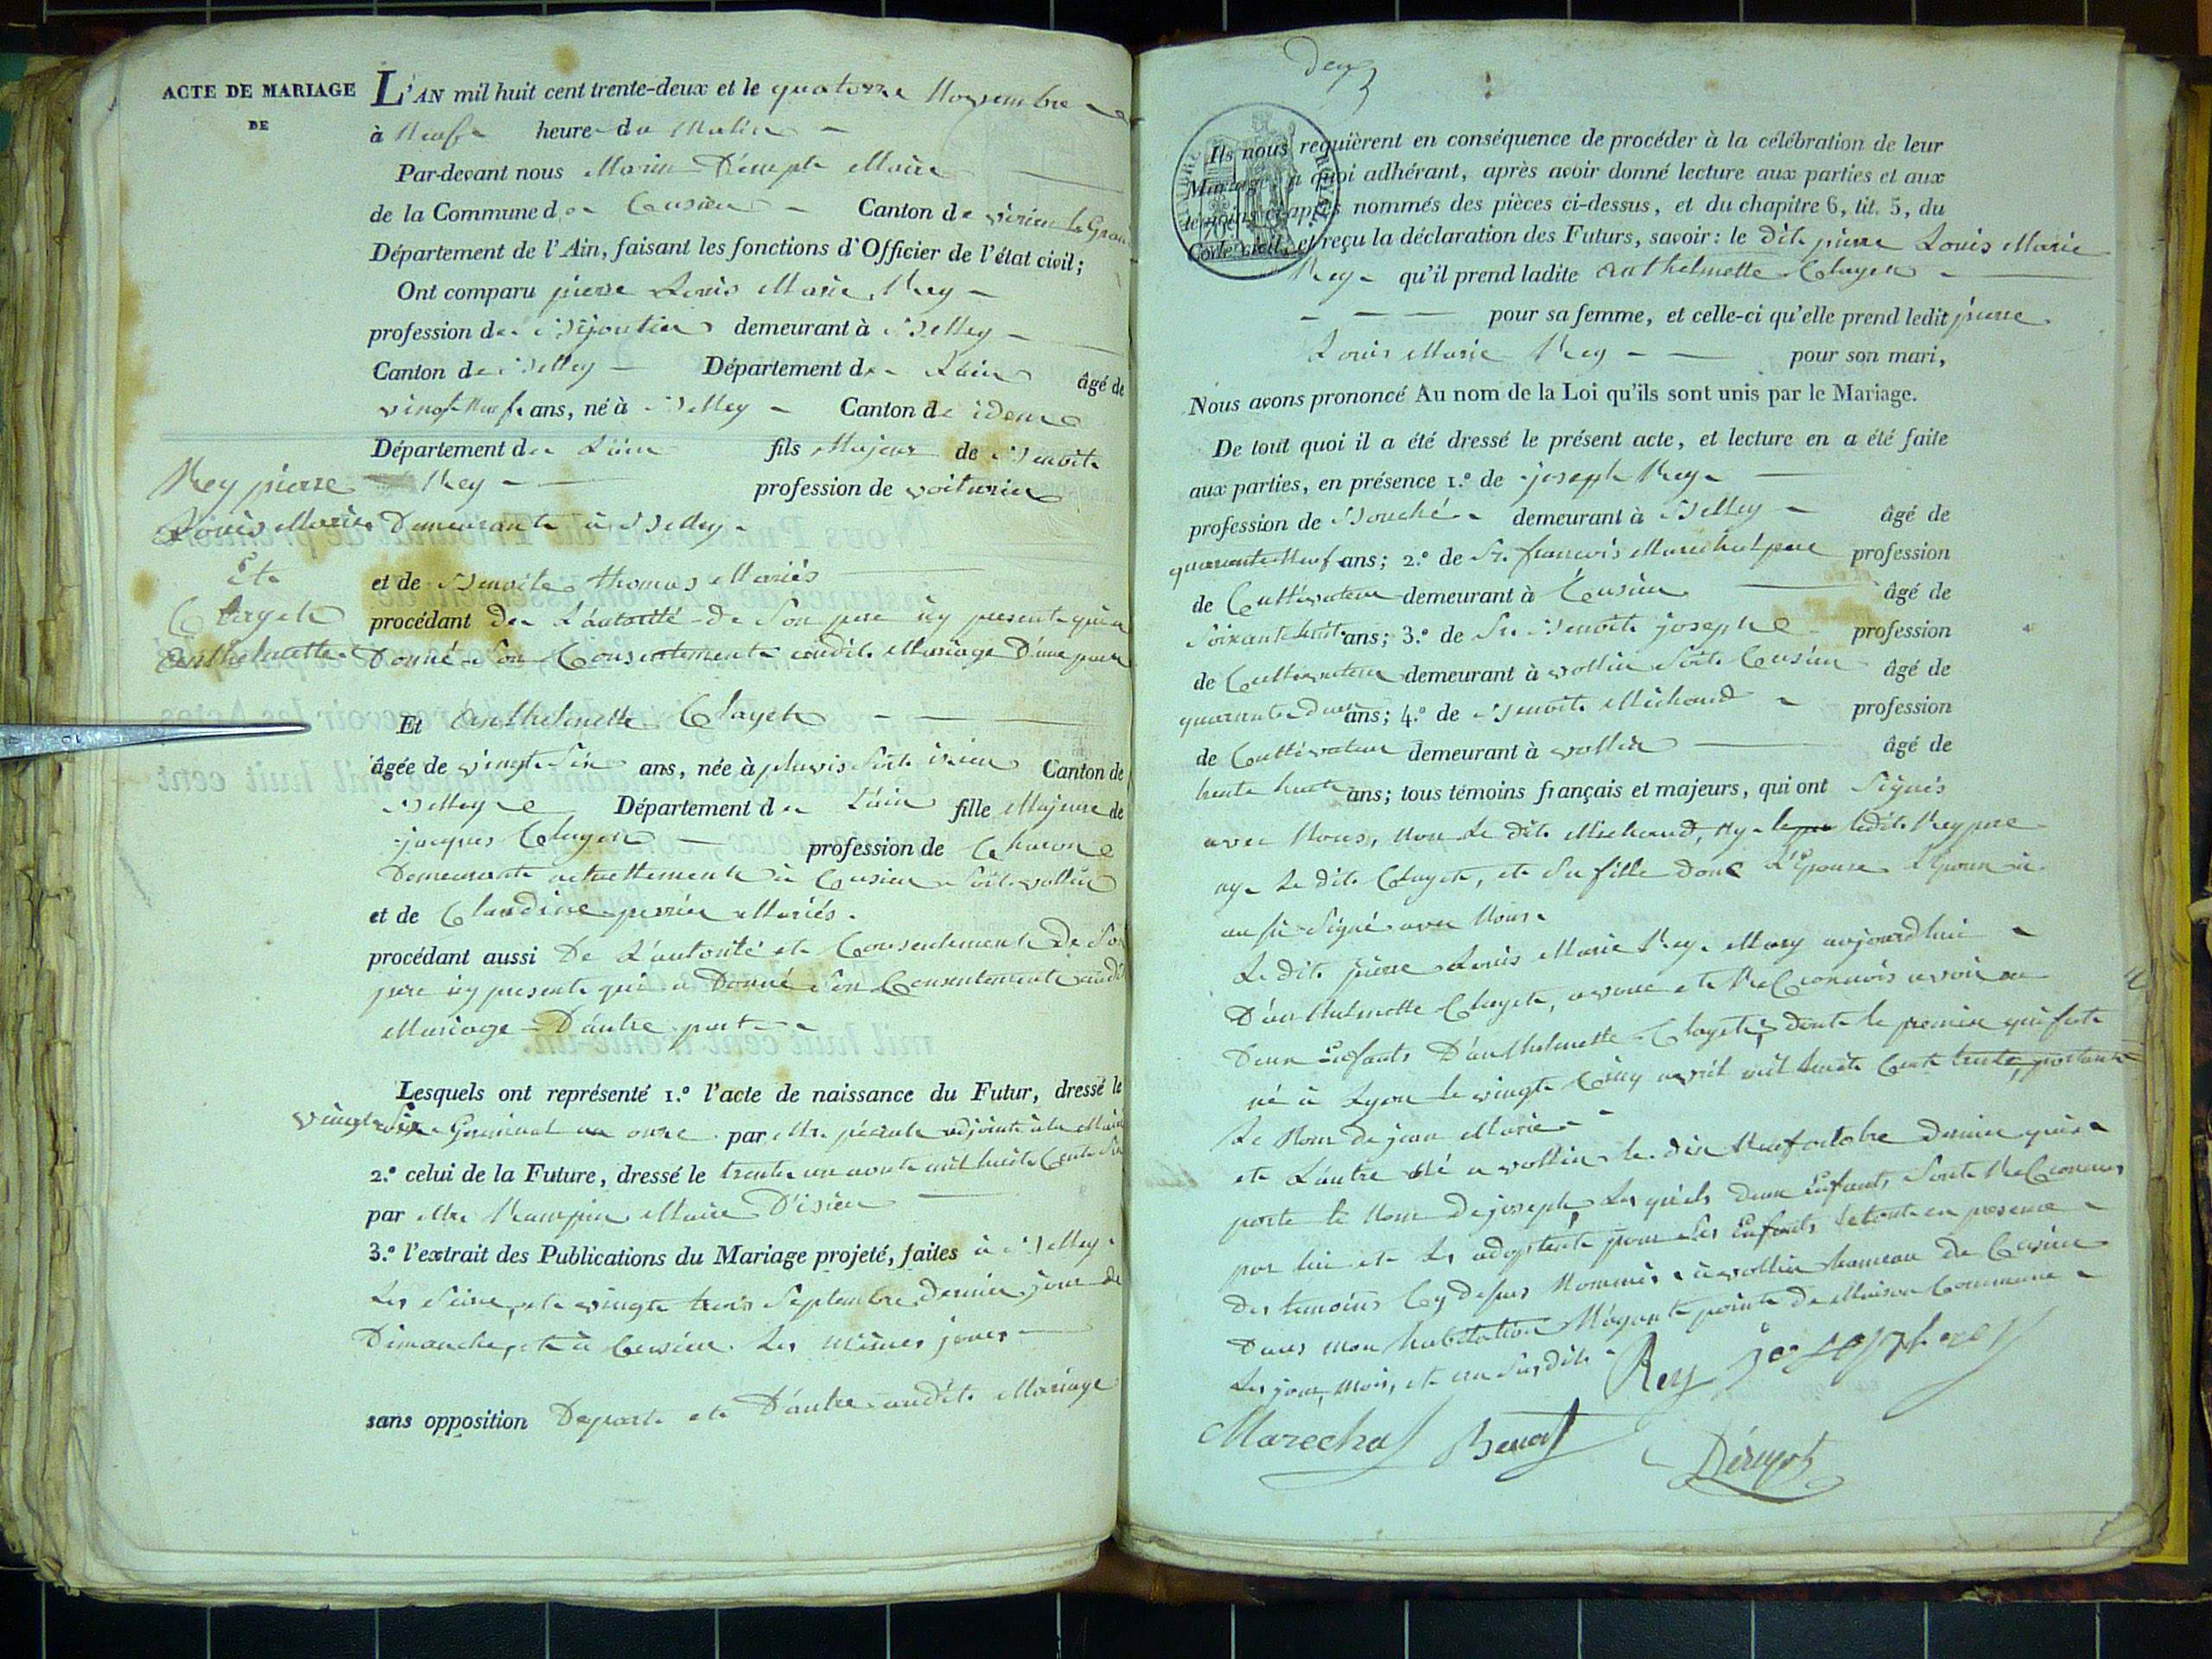 ACTE DE MARIAGE
DE
Rey pierre
Louis Marie
Et
Clayet
Anthelmette
L'AN mil huit cent trente-deux et le quatorze Novembre
à Neuf heure du Matin
Par-devant nous Maire
de la Commune de Cusieu Canton de virieu le Grand
Département de l'Ain, faisant les fonctions d'Officier de l'état civil;
Ont comparu pierre Louis Marie Rey
profession de Bijoutier demeurant à Belley
Canton de Belley Département de Lain âgé de
vingt Neuf ans, né à Belley Canton de idem
Département de Lain fils Majeur de Benoit
Rey profession de voiturier
Demeurant à Belley
et de Benoite thomas Mariés
procédant De L'autorité de Son pere icy present qui a
Donné Son Consentement audit Mariage D'une part
Et Anthelmette Clayet
âgée de vingt Six ans, née à Soit isieu Canton de
Belley Département de Lain fille Majeure de
jacques Clayet profession de Charon
Demeurant actuellement à Cusieu Soit vollien
et de Claudine perrin Mariés.
procédant aussi De L'autorité et Consentement De Son
pere icy present qui a Donné Son Consentement audit
Mariage D'autre part
Lesquels ont représenté 1.º l'acte de naissance du Futur, dressé le
vingt Six Germinal an onze par Mr. adjoint à la Mairie
2.º celui de la Future, dressé le trente un aout mil huit Cent Six
par Mr. Maire D'isieu
3.º l'extrait des Publications du Mariage projeté, faites à Belley
Les Seize et vingt trois Septembre Dernier jour de
Dimanche, et à Cusieu Les mêmes jours
sans opposition De part et D'autre audit Mariage
deux
Ils nous requièrent en conséquence de procéder à la célébration de leur
Mariage, à quoi adhérant, après avoir donné lecture aux parties et aux
témoins ci-après nommés des pièces ci-dessus, et du chapitre 6, tit. 5, du
Code civil, et reçu la déclaration des Futurs, savoir: le dit pierre Louis Marie
Rey qu'il prend ladite Anthelmette Clayet
pour sa femme, et celle-ci qu'elle prend ledit pierre
Louis Marie Rey pour son mari,
Nous avons prononcé Au nom de la Loi qu'ils sont unis par le Mariage.
De tout quoi il a été dressé le présent acte, et lecture en a été faite
aux parties, en présence 1.º de joseph Rey
profession de Bouché demeurant à Belley âgé de
quarante Neuf ans; 2.º de Sr. francois Marechal pere profession
de Cultivateur demeurant à Cusieu âgé de
Soixante huit ans; 3.º de Sr. Benoit joseph profession
de Cultivateur demeurant à vollien Soit Cusieu âgé de
quarante Deux ans; 4.º de Benoit Michaud profession
de Cultivateur demeurant à vollien âgé de
trente huit ans; tous témoins français et majeurs, qui ont Signés
avec Nous, Non Le dit Michaud, Ny ledit Rey pere
ny Le dit Clayet, et Sa fille L'Epouse L'Epoux à
aussi Signé avec Nous
Le dit pierre Louis Marie Rey Mary aujourdhui
D'anthelmette Clayet, avoue et ReConnois avoir eu
Deux Enfants D'anthelmette Clayet, Dont le premier qui fut
né à Lyon Le vingt Cinq avril mil huit Cent trente, portant
Le Nom de jean Marie
et L'autre Né a vollien le dix Neuf octobre Dernier qui
porte le Nom De joseph Les quels Deux Enfants Sont ReConnus
par lui et Les adoptent pour Ses Enfants Le tout en presence
Des temoins Cy Dessus Nommés à vollien hameau De Cusieu
Dans mon habitation N'ayant point De Maison Commune
Les jour, mois, et an Susdits
Rey Joseph rey
Marechal Benoit